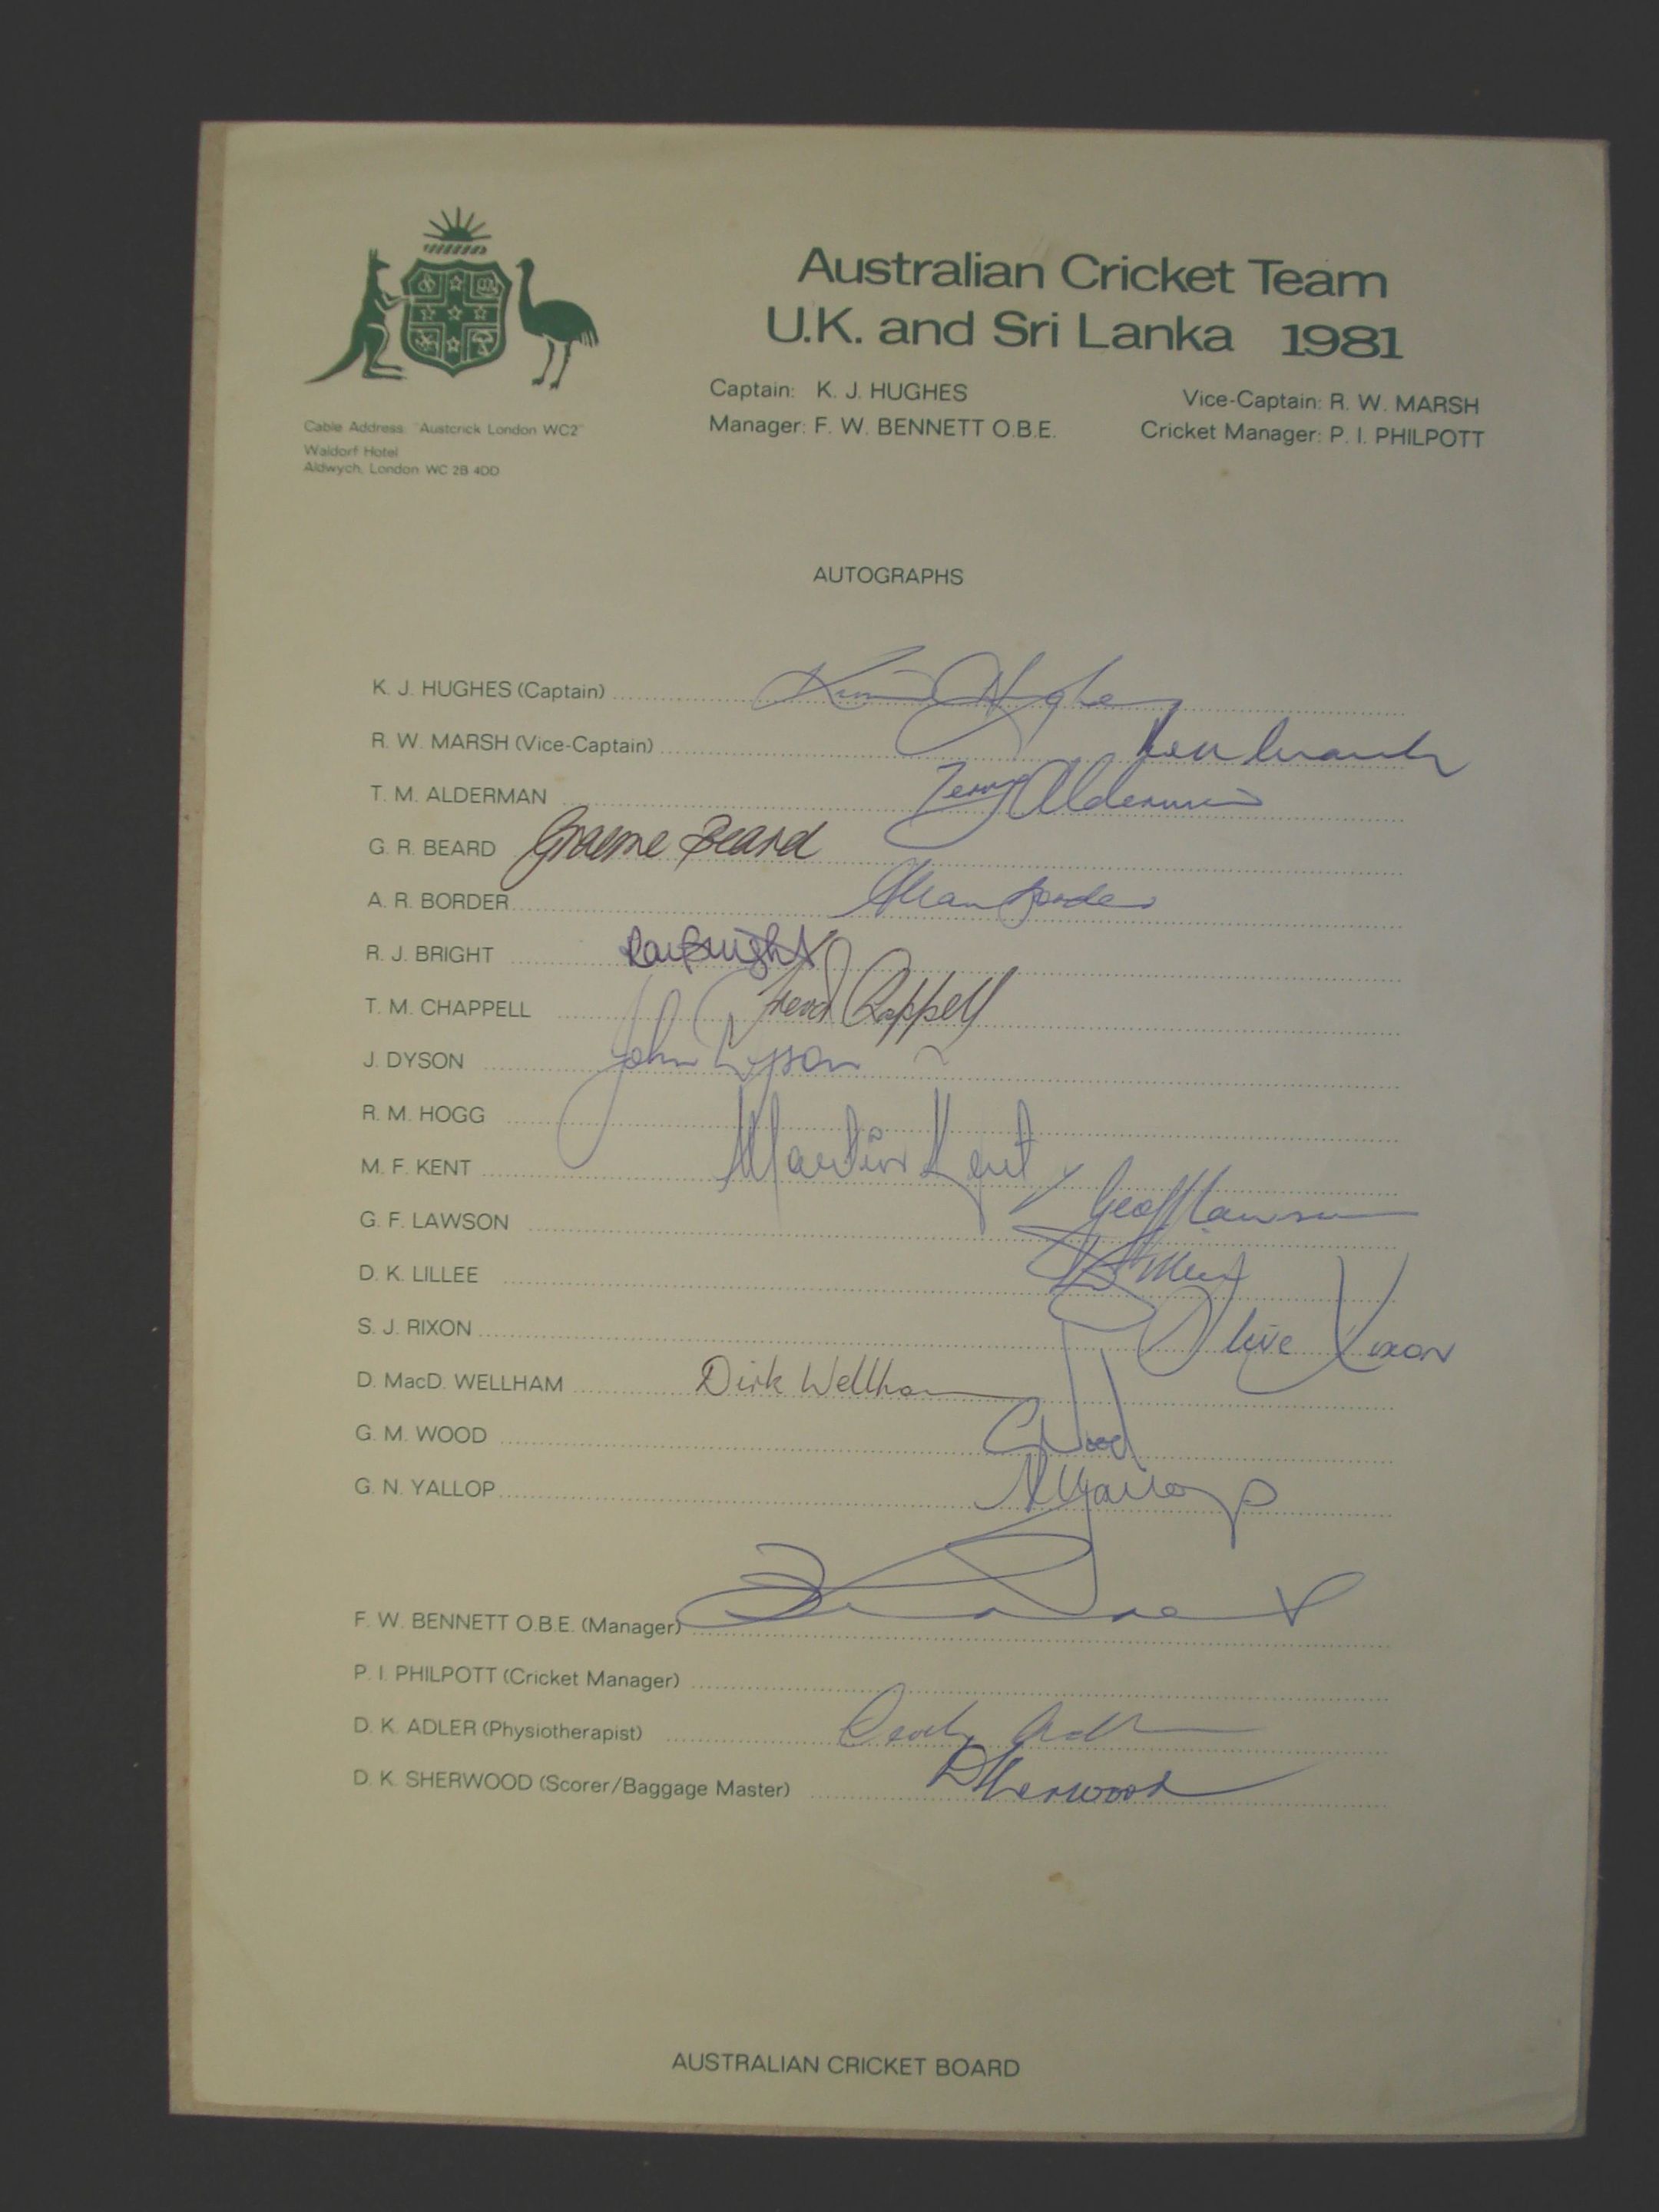 Australian Cricket Team
U.K. and Sri Lanka 1981
Captain: K. J. HUGHES Vice-Captain: R. W. MARSH
Manager: F. W. BENNETT O.B.E. Cricket Manager: P. I. PHILPOTT
Cable Address: "Austcrick London WC2"
Waldorf Hotel
Aldwych, London WC 2B 4DD
AUTOGRAPHS
K. J. HUGHES (Captain) Kim Hughes
R. W. MARSH (Vice-Captain) Marsh
T. M. ALDERMAN Terry Alderman
G. R. BEARD Graeme Beard
A. R. BORDER Allan Border
R. J. BRIGHT Ray Bright
T. M. CHAPPELL Trevor Chappell
J. DYSON John Dyson
R. M. HOGG
M. F. KENT Martin Kent
G. F. LAWSON Geoff Lawson
D. K. LILLEE
S. J. RIXON Steve Rixon
D. MacD. WELLHAM Dirk Wellham
G. M. WOOD G Wood
G. N. YALLOP Yallop
F. W. BENNETT O.B.E. (Manager)
P. I. PHILPOTT (Cricket Manager)
D. K. ADLER (Physiotherapist)
D. K. SHERWOOD (Scorer/Baggage Master) D Sherwood
AUSTRALIAN CRICKET BOARD